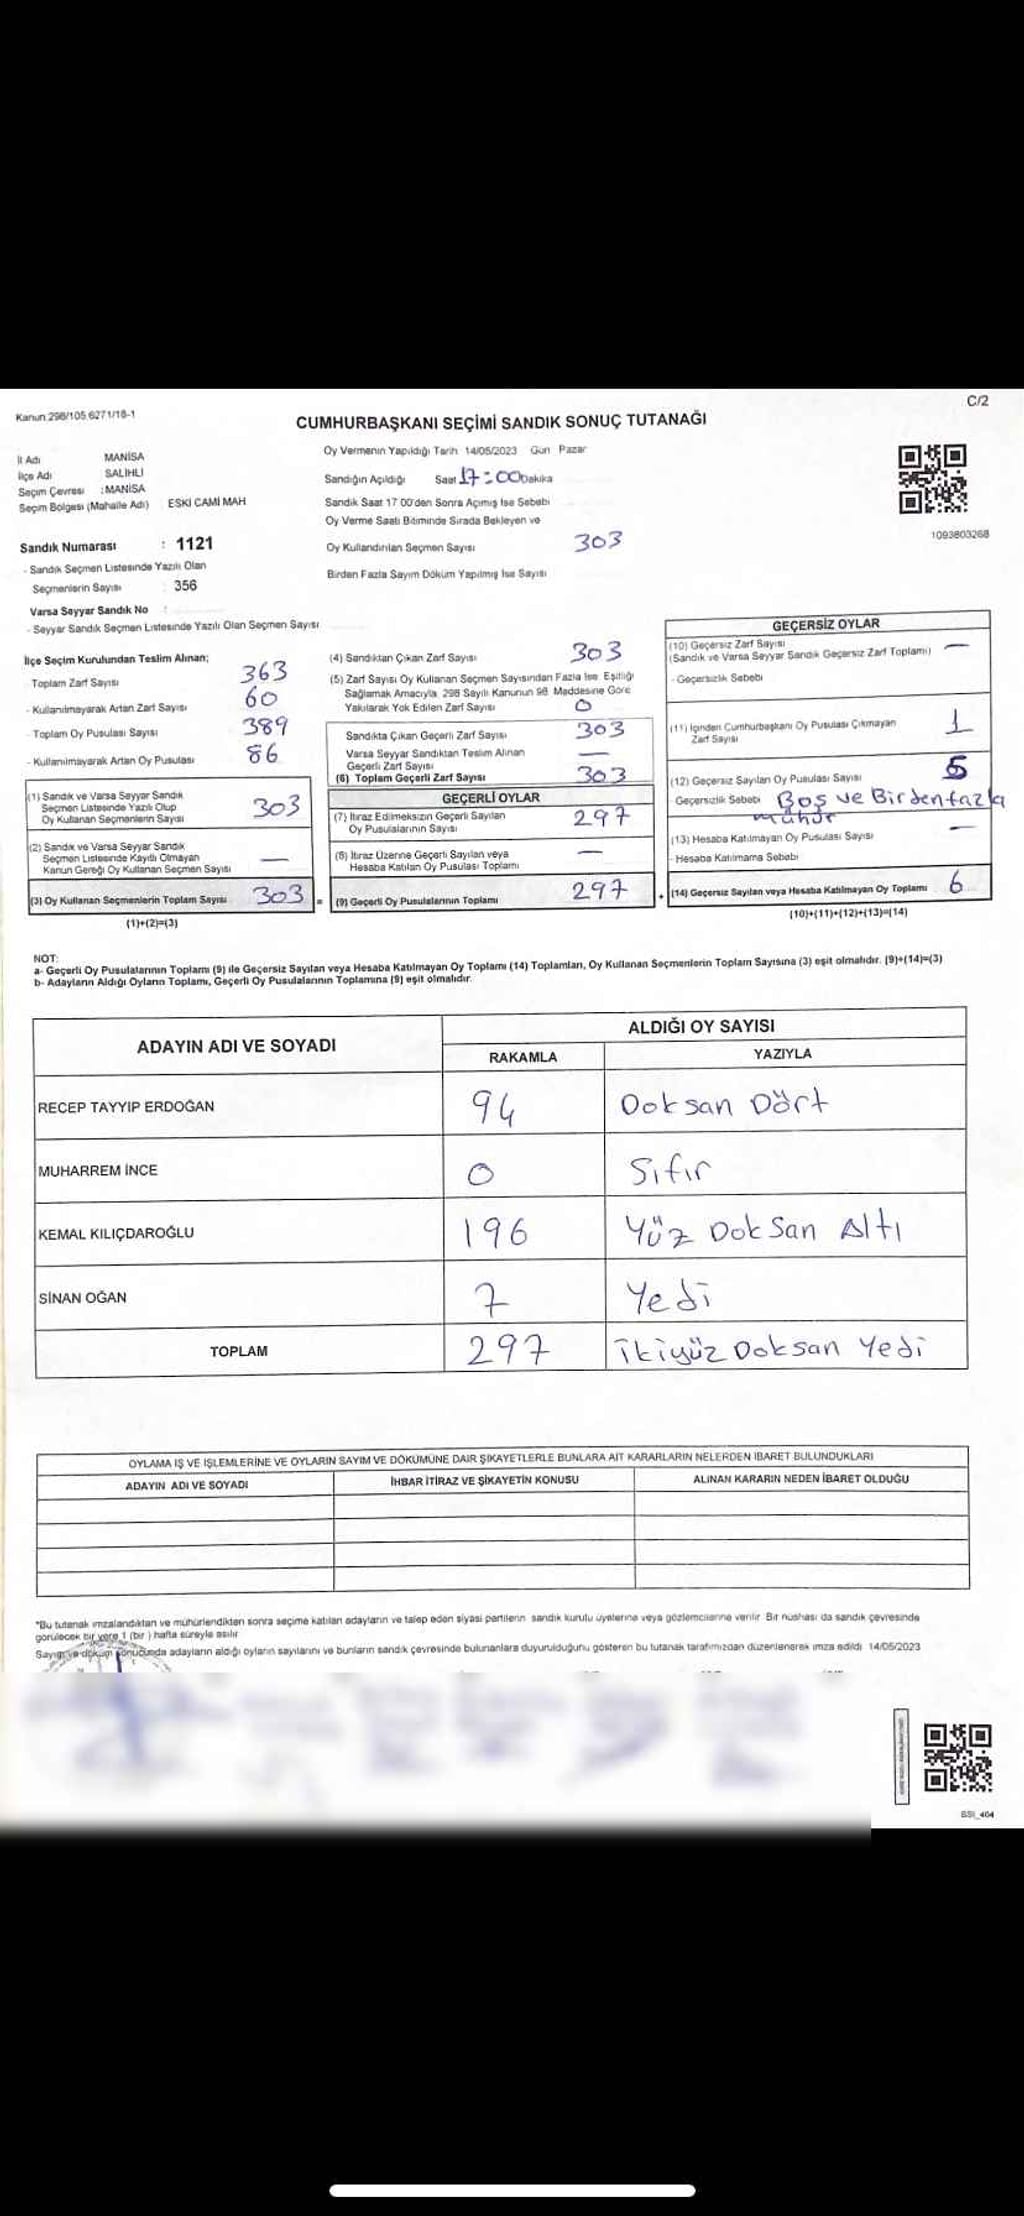 Kanun:298/105.6271/18-1
C/2
CUMHURBAŞKANI SEÇİMİ SANDIK SONUÇ TUTANAĞI
İl Adı MANİSA
İlçe Adı SALİHLİ
Seçim Çevresi : MANİSA
Seçim Bölgesi (Mahalle Adı) ESKİ CAMİ MAH
Sandık Numarası : 1121
- Sandık Seçmen Listesinde Yazılı Olan
Seçmenlerin Sayısı : 356
Varsa Seyyar Sandık No :
- Seyyar Sandık Seçmen Listesinde Yazılı Olan Seçmen Sayısı
Oy Vermenin Yapıldığı Tarih 14/05/2023 Gün Pazar
Sandığın Açıldığı Saat 17:00 Dakika
Sandık Saat 17 00'den Sonra Açımış İse Sebebi
Oy Verme Saati Bitiminde Sırada Bekleyen ve
Oy Kullandırılan Seçmen Sayısı 303
Birden Fazla Sayım Döküm Yapılmış İse Sayısı
1093803268
İlçe Seçim Kurulundan Teslim Alınan;
Toplam Zarf Sayısı 363
- Kullanılmayarak Artan Zarf Sayısı 60
- Toplam Oy Pusulası Sayısı 389
- Kullanılmayarak Artan Oy Pusulası 86
(1) Sandık ve Varsa Seyyar Sandık
Seçmen Listesinde Yazılı Olup
Oy Kullanan Seçmenlerin Sayısı 303
(2) Sandık ve Varsa Seyyar Sandık
Seçmen Listesinde Kayıtlı Olmayan
Kanun Gereği Oy Kullanan Seçmen Sayısı —
(3) Oy Kullanan Seçmenlerin Toplam Sayısı 303 =
(1)+(2)=(3)
(4) Sandıktan Çıkan Zarf Sayısı 303
(5) Zarf Sayısı Oy Kullanan Seçmen Sayısından Fazla İse Eşitliği
Sağlamak Amacıyla, 298 Sayılı Kanunun 98. Maddesine Göre
Yakılarak Yok Edilen Zarf Sayısı 0
Sandıkta Çıkan Geçerli Zarf Sayısı 303
Varsa Seyyar Sandıktan Teslim Alınan
Geçerli Zarf Sayısı —
(6) Toplam Geçerli Zarf Sayısı 303
GEÇERLİ OYLAR
(7) İtiraz Edilmeksizin Geçerli Sayılan
Oy Pusulalarının Sayısı 297
(8) İtiraz Üzerine Geçerli Sayılan veya
Hesaba Katılan Oy Pusulası Toplamı —
(9) Geçerli Oy Pusulalarının Toplamı 297 +
GEÇERSİZ OYLAR
(10) Geçersiz Zarf Sayısı
(Sandık ve Varsa Seyyar Sandık Geçersiz Zarf Toplamı) —
- Geçersizlik Sebebi
(11) İçinden Cumhurbaşkanı Oy Pusulası Çıkmayan
Zarf Sayısı 1
(12) Geçersiz Sayılan Oy Pusulası Sayısı 5
Geçersizlik Sebebi Boş ve Birden fazla
mühür
(13) Hesaba Katılmayan Oy Pusulası Sayısı —
- Hesaba Katılmama Sebebi
(14) Geçersiz Sayılan veya Hesaba Katılmayan Oy Toplamı 6
(10)+(11)+(12)+(13)=(14)
NOT:
a- Geçerli Oy Pusulalarının Toplamı (9) ile Geçersiz Sayılan veya Hesaba Katılmayan Oy Toplamı (14) Toplamları, Oy Kullanan Seçmenlerin Toplam Sayısına (3) eşit olmalıdır. (9)+(14)=(3)
b- Adayların Aldığı Oyların Toplamı, Geçerli Oy Pusulalarının Toplamına (9) eşit olmalıdır.
ADAYIN ADI VE SOYADI
ALDIĞI OY SAYISI
RAKAMLA YAZIYLA
RECEP TAYYIP ERDOĞAN 94 Doksan Dört
MUHARREM İNCE 0 Sıfır
KEMAL KILIÇDAROĞLU 196 Yüz Doksan Altı
SİNAN OĞAN 7 Yedi
TOPLAM 297 ikiyüz Doksan Yedi
OYLAMA İŞ VE İŞLEMLERİNE VE OYLARIN SAYIM VE DÖKÜMÜNE DAİR ŞİKAYETLERLE BUNLARA AİT KARARLARIN NELERDEN İBARET BULUNDUKLARI
ADAYIN ADI VE SOYADI İHBAR İTİRAZ VE ŞİKAYETİN KONUSU ALINAN KARARIN NEDEN İBARET OLDUĞU
*Bu tutanak imzalandıktan ve mühürlendikten sonra seçime katılan adayların ve talep eden siyasi partilerin sandık kurulu üyelerine veya gözlemcilerine verilir Bir nüshası da sandık çevresinde
görülecek bir yere 1 (bir ) hafta süreyle asılır
Sayım ve döküm sonucunda adayların aldığı oyların sayılarını ve bunların sandık çevresinde bulunanlara duyurulduğunu gösteren bu tutanak tarafımızdan düzenlenerek imza edildi 14/05/2023
BSI_404